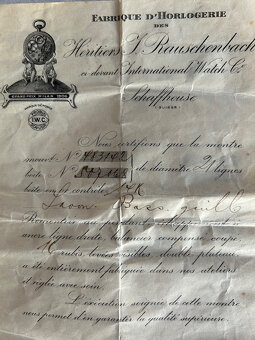 FABRIQUE D'HORLOGERIE
DES
Héritiers J. Rauschenbach
ci-devant International Watch Co
Schaffhouse
(SUISSE)
GRAND PRIX MILAN 1906
I.W.C.
Nous certifions que la montre
mouvt No
boîte No de diamètre lignes
boîte en or contrôlé
Remontoir au pendant, échappement à
ancre ligne droite, balancier compensé coupé,
levées visibles, double plateau,
a été entièrement fabriquée dans nos ateliers
et réglée avec soin.
L'exécution soignée de cette montre
nous permet d'en garantir la qualité supérieure.